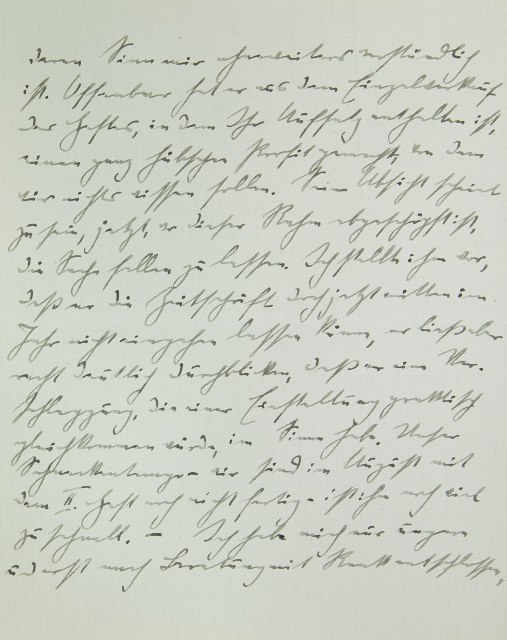 deren Sinn mir ohneweiters verständlich
ist. Offenbar hat er aus dem Einzelverkauf
des Heftes, in dem Ihr Aufsatz enthalten ist,
einen ganz hübschen Profit gemacht, von dem
wir nichts wissen sollen. Seine Absicht scheint
zu sein, jetzt, wo dieser Rahm abgeschöpft ist,
die Sache fallen zu lassen. Ich stellte ihm vor,
daß er die Zeitschrift doch jetzt mitten im
Jahr nicht eingehen lassen kann, er ließ aber
recht deutlich durchblicken, daß er eine Ver-
schleppung, die einer Einstellung praktisch
gleichkommen würde, im Sinne habe. Unser
Schneckentempo – wir sind im August mit
dem II. Heft noch nicht fertig – ist ihm noch viel
zu schnell. – Ich habe mich nur ungern
u. erst nach Beratung mit Rank entschlossen,